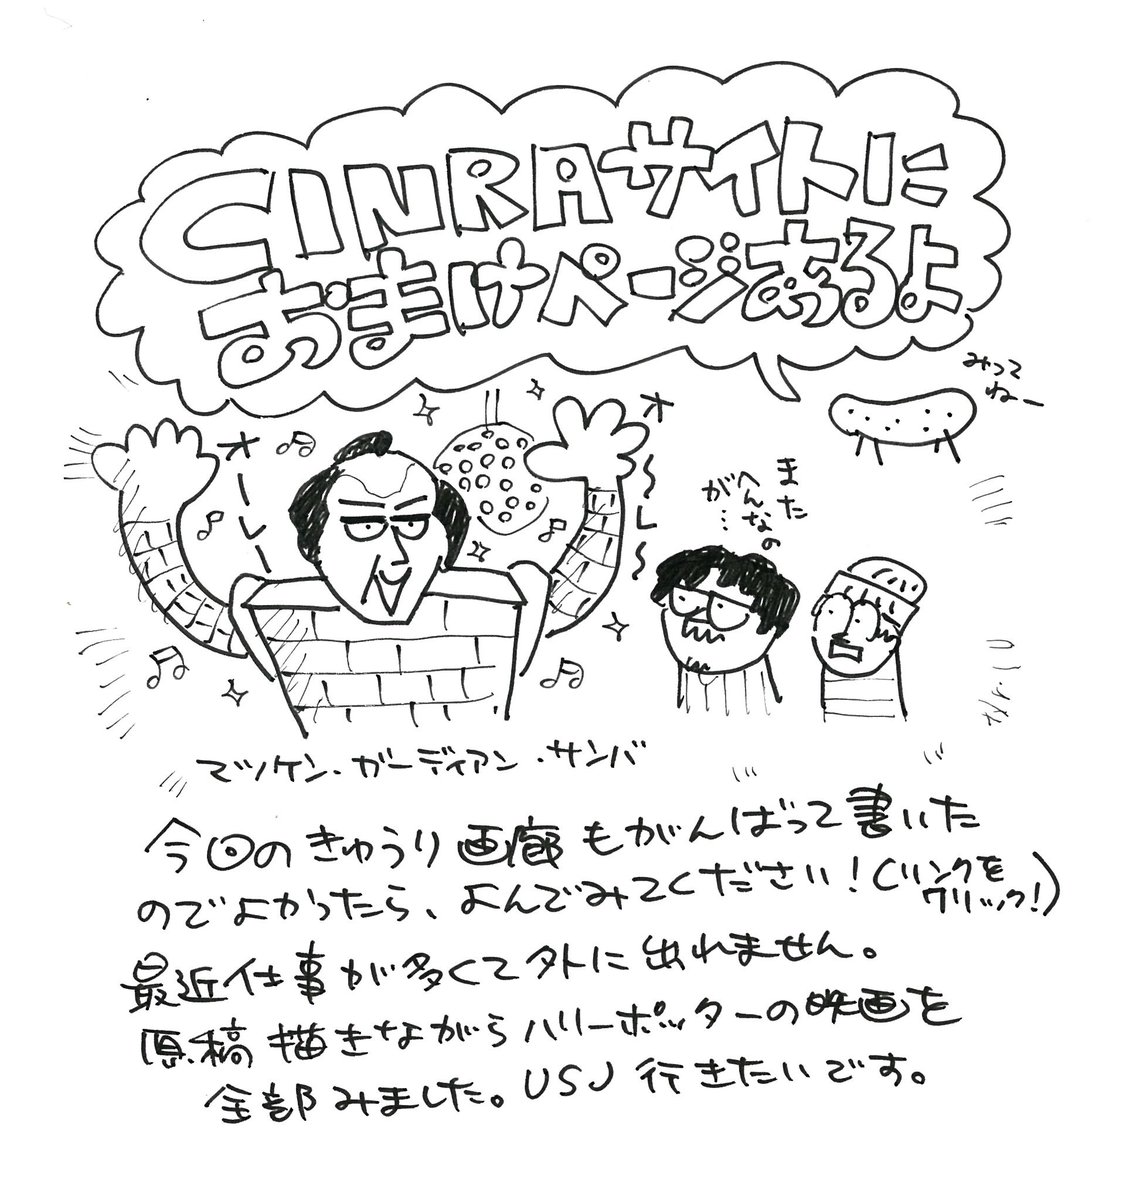 CINRAサイトに
おまけページあるよ
みってねー
オーレー
オ〜レ〜
また
へんなの
が…
マツケン・ガーディアン・サンバ
今回のきゅうり画廊もがんばって書いた
のでよかったら、よんでみてください！（リンクを
クリック！）
最近仕事が多くて外に出れません。
原稿描きながらハリーポッターの映画を
全部みました。USJ行きたいです。